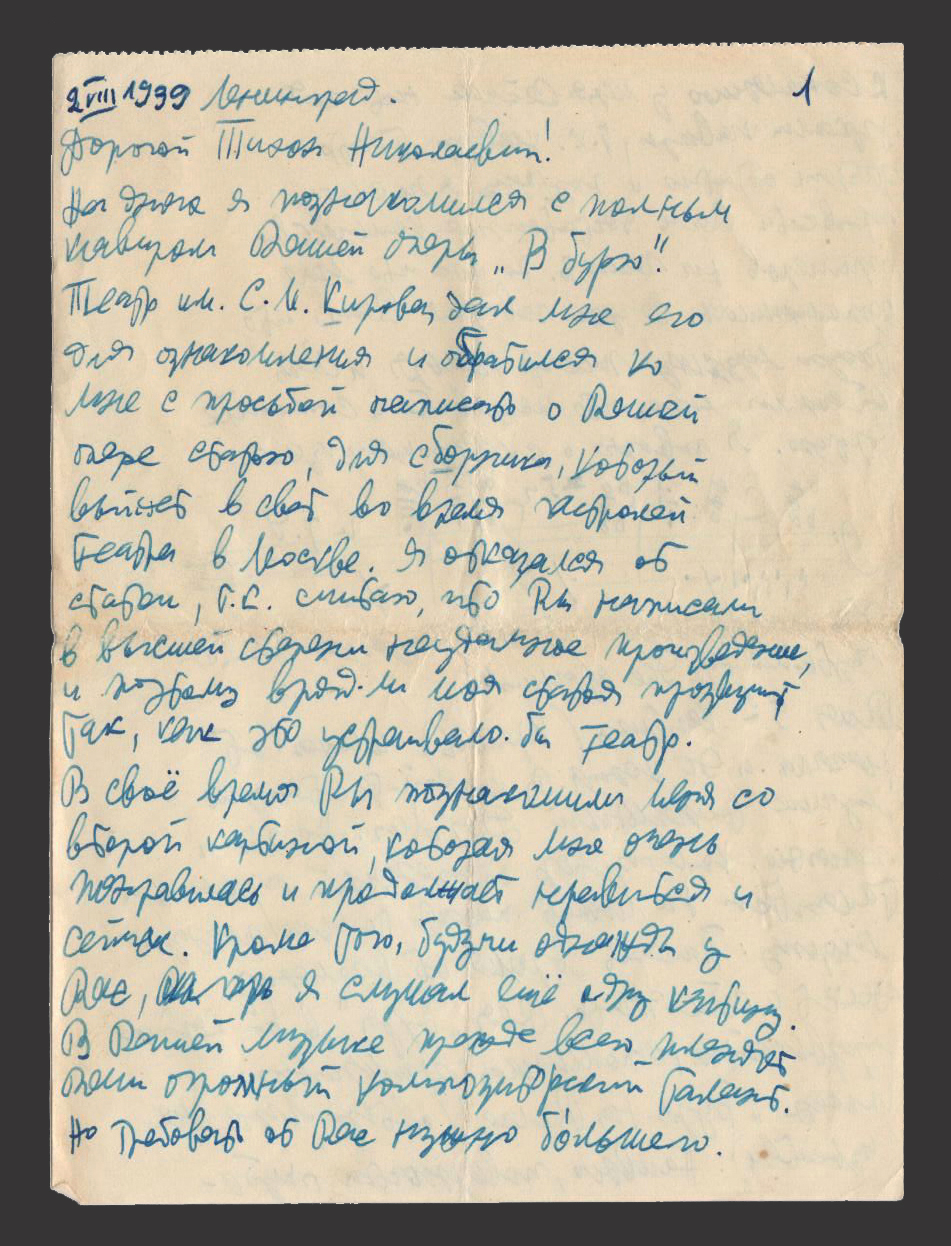 2 VIII 1939 Ленинград. 1
Дорогой Тихон Николаевич!
На днях я познакомился с полным
клавиром Вашей оперы „В бурю".
Театр им. С. М. Кирова, дал мне его
для ознакомления и обратился ко
мне с просьбой написать о Вашей
опере статью, для сборника, который
выйдет в свет во время гастролей
театра в Москве. Я отказался от
статьи, т.к. считаю, что Вы написали
в высшей степени неудачное произведение,
и поэтому вряд-ли моя статья прозвучит
так, как это устраивало-бы театр.
В своё время Вы познакомили меня со
второй картиной, которая мне очень
понравилась и продолжает нравиться и
сейчас. Кроме того, будучи однажды у
Вас, я слушал ещё одну картину.
В Вашей музыке прежде всего пленяет
Ваш огромный композиторский талант.
Но требовать от Вас нужно бо́льшего.